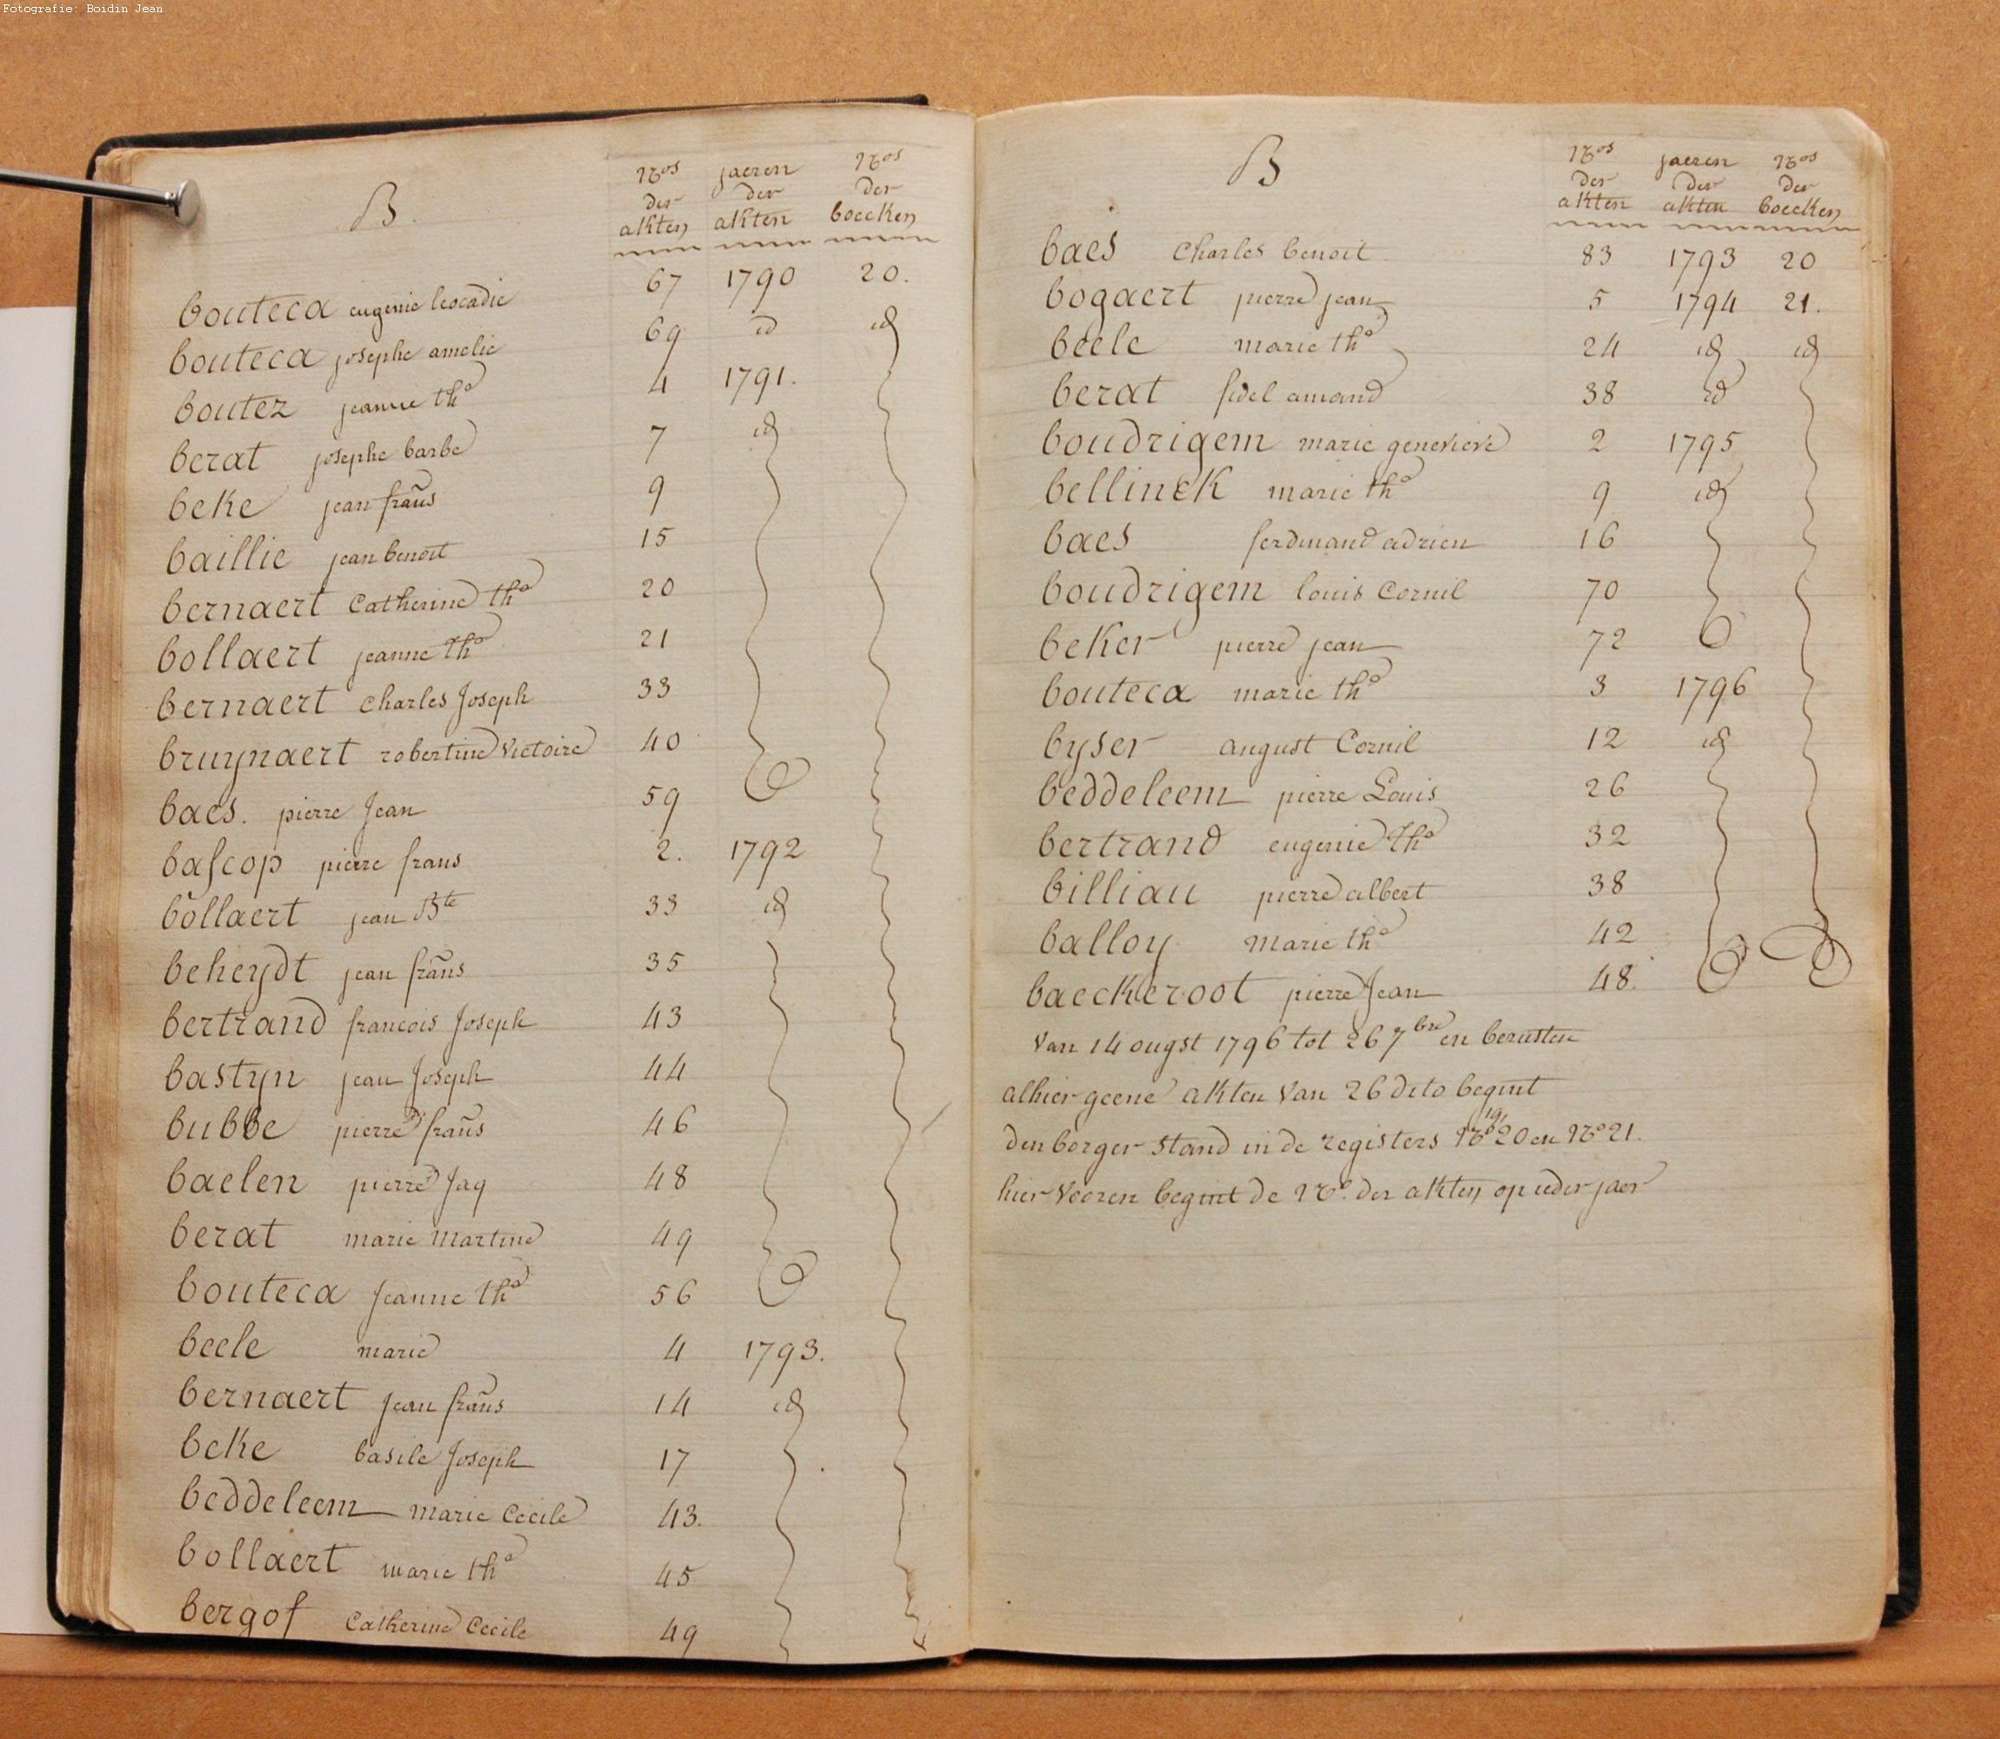 Fotografie: Boidin Jean
B.
Nos der akten
jaeren der akten
Nos der boecken
bouteca eugenie leocadie 67 1790 20.
bouteca josephe amelie 69 id id
boutez jeanne tha 4 1791.
berat josephe barbe 7 id
beke jean frans 9
baillie jean benoit 15
bernaert Catherine tha 20
bollaert jeanne tha 21
bernaert Charles Joseph 33
bruynaert robertine Victoire 40
baes. pierre Jean 59
bascop pierre frans 2. 1792
bollaert jean Bte 33 id
beheydt jean frans 35
bertrand francois Joseph 43
bastyn jean Joseph 44
bubbe pierre frans 46
baelen pierre Jaq 48
berat marie Martine 49
bouteca Jeanne tha 56
beele marie 4 1793.
bernaert Jean frans 14 id
beke basile Joseph 17
beddeleem marie Cecile 43.
bollaert marie tha 45
bergof Catherine Cecile 49
B
Nos der akten
jaeren der akten
Nos der boecken
baes Charles benoit 83 1793 20
bogaert pierre jean 5 1794 21.
beele marie tha 24 id id
berat fidel amand 38 id
boudrigem marie genevieve 2 1795
bellinck marie tha 9 id
baes ferdinand adrien 16
boudrigem louis Cornil 70
beker pierre jean 72
bouteca marie tha 3 1796
byser august Cornil 12 id
beddeleem pierre Louis 26
bertrand eugenie tha 32
billiau pierre albert 38
balloy marie tha 42
baeckeroot pierre Jean 48.
Van 14 ougst 1796 tot 26 7bre en berusten
alhier geene akten Van 26 dito begint
den borger stand in de registers No 19, 20 en No 21.
hier Vooren begint de No. der akten op ieder jaer